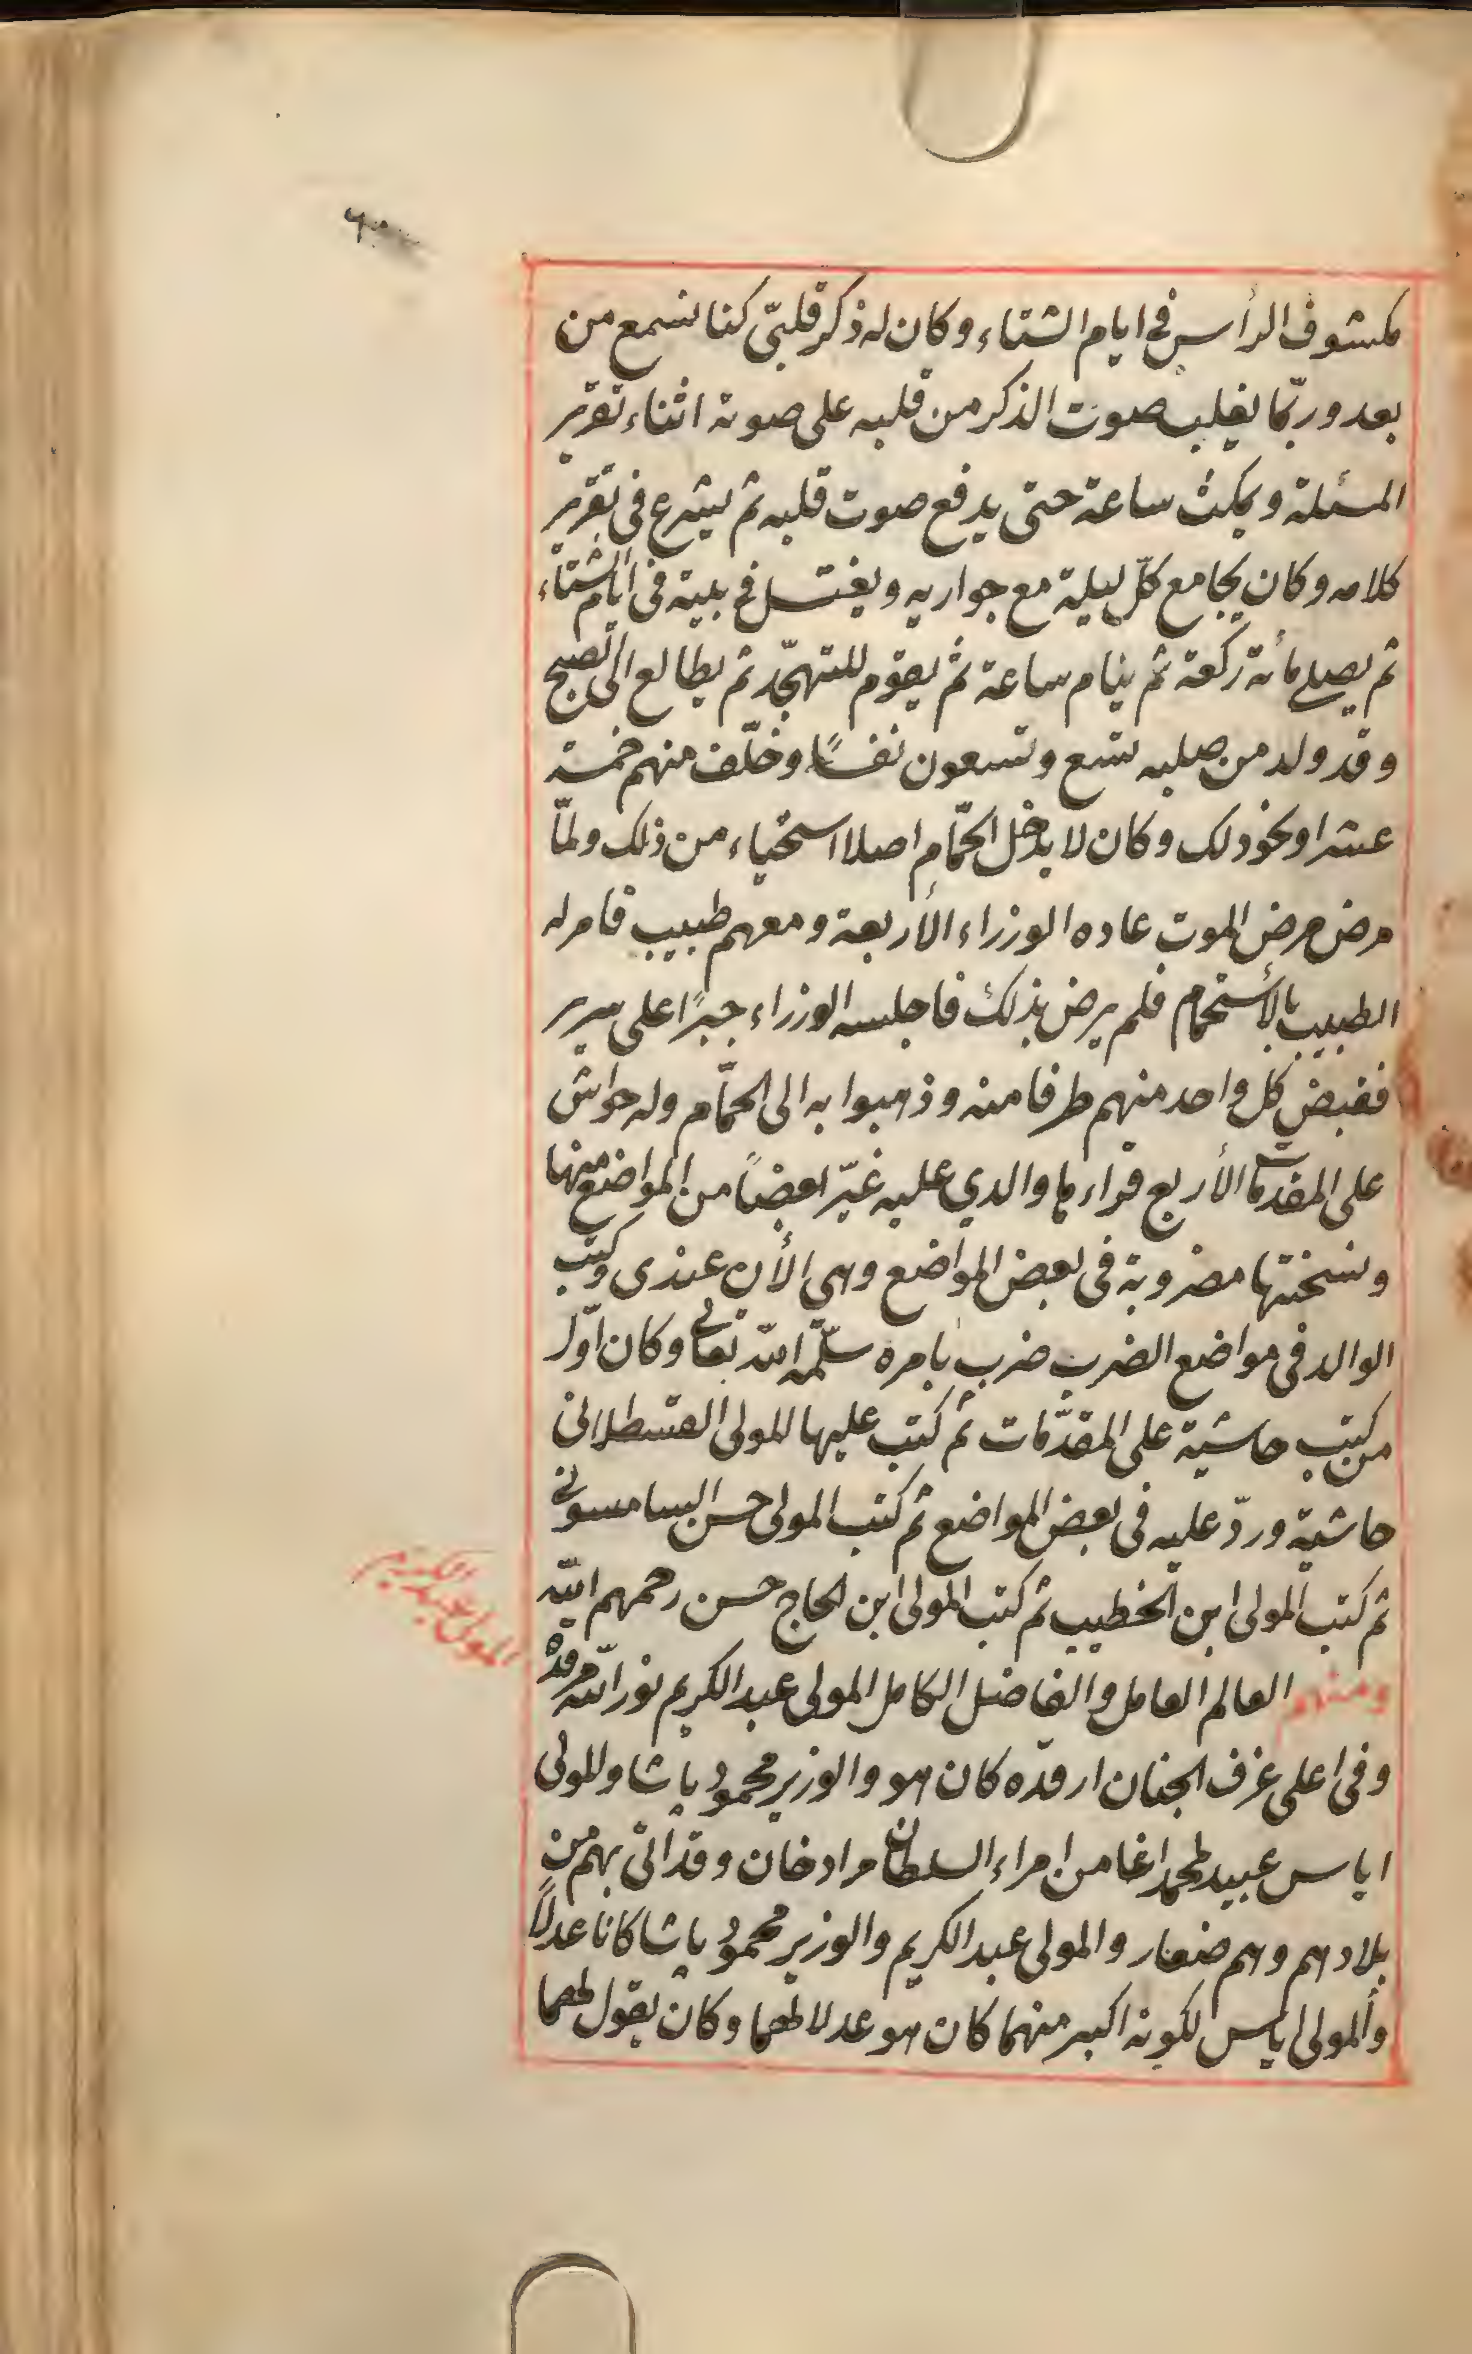 ٦٠
مكشوف الرأس فى ايام الشتاء وكان له ذكر قلبىّ كنا نسمع من
بعد وربّما يغلب صوت الذكر من قلبه على صوته اثناء تقرير
المسئلة ويمكث ساعة حتى يدفع صوت قلبه ثم يشرع فى تقرير
كلامه وكان يجامع كلّ ليلة مع جواريه ويغتسل فى بيته فى ايام الشتاء
ثم يصلى مائة ركعة ثم ينام ساعة ثم يقوم للتهجّد ثم يطالع الى الصبح
وقد ولد من صلبه تسع وتسعون نفسًا وخلّف منهم خمسة
عشر او نحو ذلك وكان لا يدخل الحمّام اصلا استحياء من ذلك ولمّا
مرض مرض الموت عاده الوزراء الأربعة ومعهم طبيب فامر له
الطبيب بالأستحمام فلم يرض بذلك فاجلسه الوزراء جبرًا على سرير
فقبض كل واحد منهم طرفا منه وذهبوا به الى الحمّام وله حواش
على المقدمات الأربع قراءها والدي عليه غيّر بعضاً من المواضع منها
ونسختها مضروبة فى بعض المواضع وهى الأن عندى وكتب
الوالد فى مواضع الضرب ضرب بامره سلّمه الله تعالى وكان اوّل
من كتب حاشية على المقدّمات ثم كتب عليها المولى القسطلانى
حاشية وردّ عليه فى بعض المواضع ثم كتب المولى حسن السامسونى
ثم كتب المولى ابن الخطيب ثم كتب المولى ابن الحاج حسن رحمهم الله
ومنهم العالم العامل والفاضل الكامل المولى عبد الكريم نور الله مرقده
المولى عبد الكريم
وفى اعلى غرف الجنان ارقده كان هو والوزير محمود پاشا والمولى
اياس عبيد لمحمد اغا من امراء السلطان مراد خان وقد اتى بهم من
بلادهم وهم صغار والمولى عبد الكريم والوزير محمود پاشا كانا عدلاً
والمولى اياس لكونه اكبر منهما كان هو عدلا لهما وكان يقول لهما